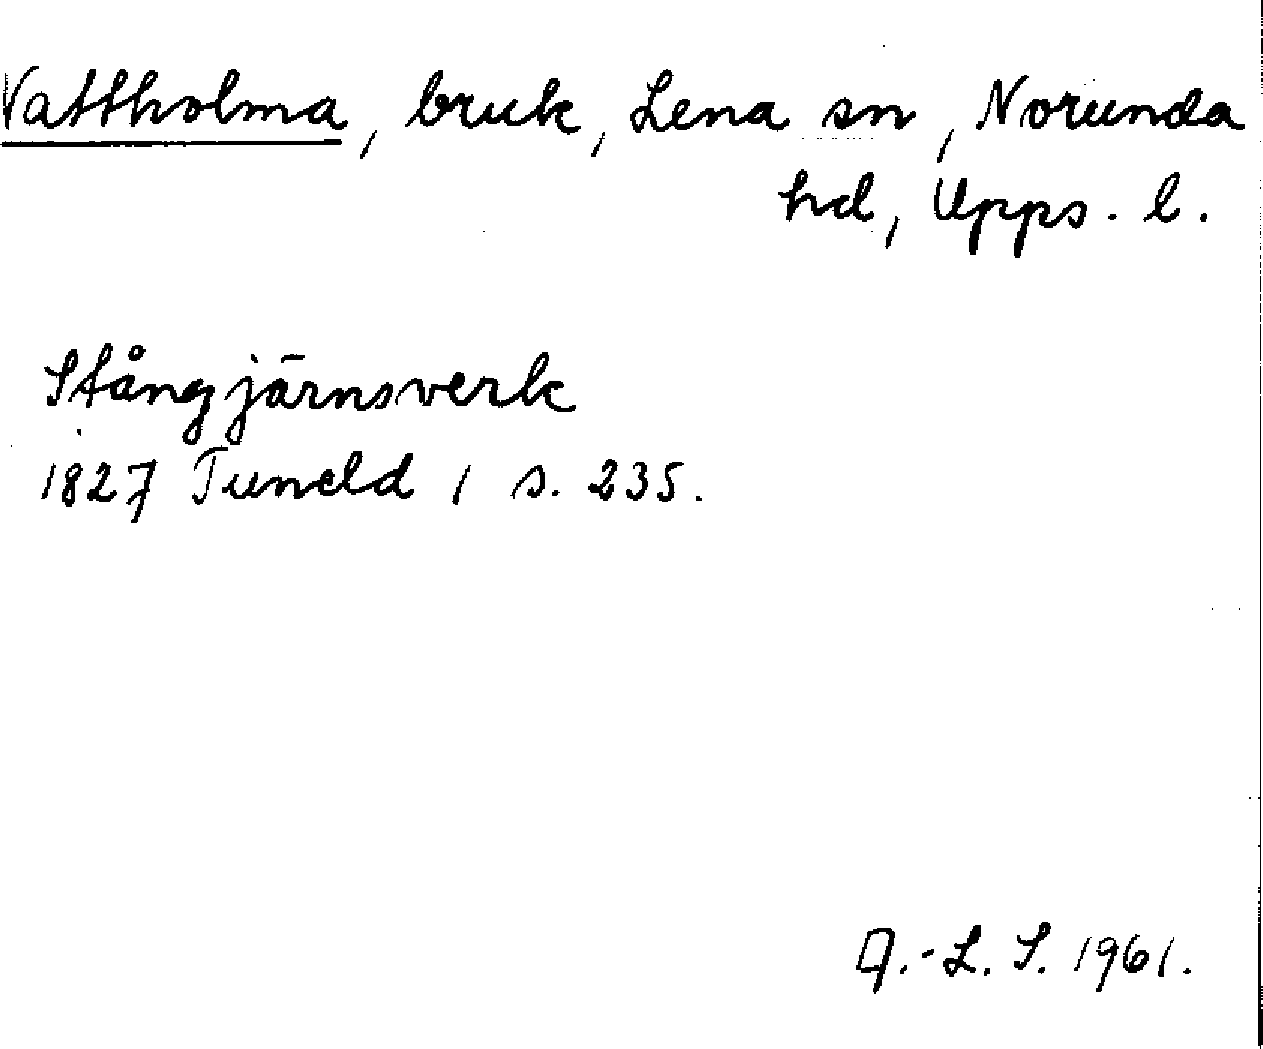 Vattholma, bruk, Lena sn, Norunda
hd, Upps. l.
Stångjärnsverk
1827 Tuneld 1 s. 235.
A.-L. S. 1961.